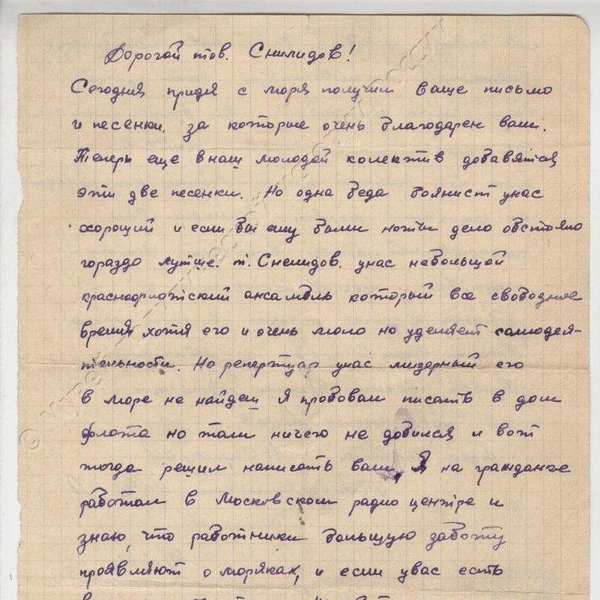 Дорогой тов. Снилидов!
Сегодня придя с моря получил Ваше письмо
и песенки. за которые очень благодарен вам.
Теперь еще в наш молодой колектив добавятся
эти две песенки. Но одна беда боянист унас
хороший и если бы ему были ноты дело обстояло
гораздо лутше. т. Снелидов. унас небольшой
краснофлотский ансамбль который все свободное
время хотя его и очень мало но уделяет самодея-
тельности. Но репертуар унас мизерный его
в море не найдеш Я пробовал писать в дом
флота но там ничего не добился и вот
тогда решил написать вам, Я на гражданке
работал в Московском радио центре и
знаю, что работники большую заботу
проявляют о моряках, и если увас есть